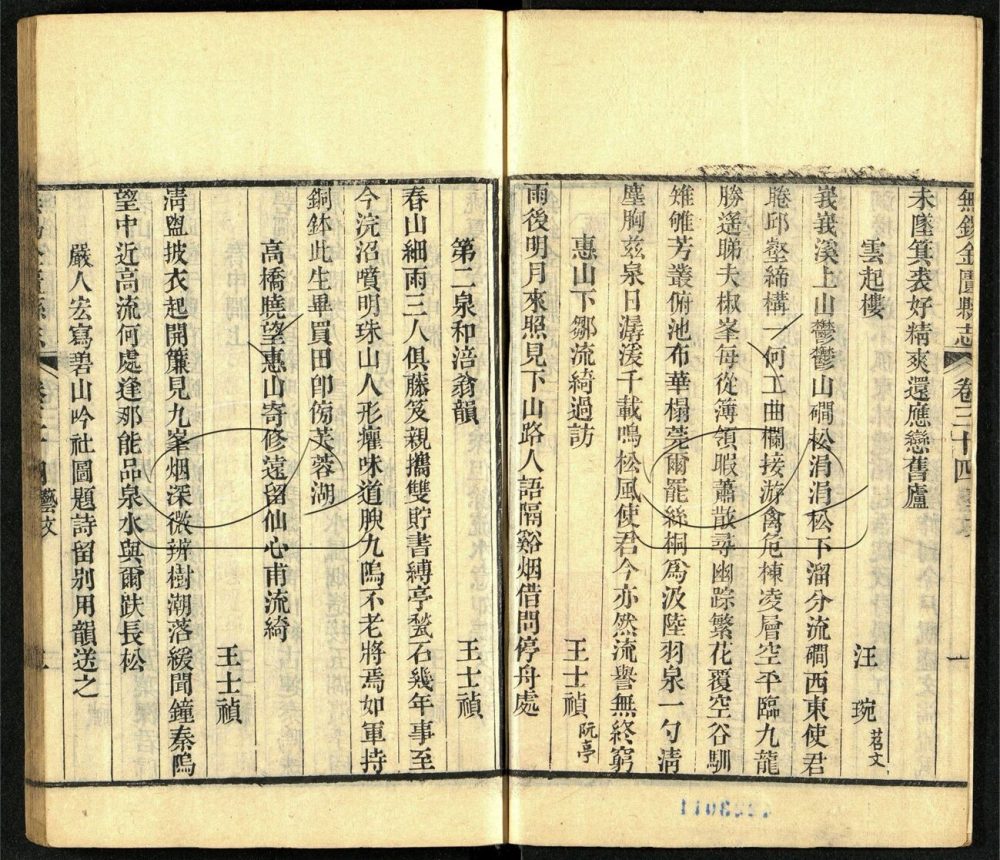 無錫金匱縣志 卷三十四 藝文 一
未墜箕裘好精爽還應戀舊廬
雲起樓 汪琬 苕文
峩峩溪上山鬱鬱山磵松涓涓松下溜分流磵西東使君
睠邱壑締構一何工曲欄接游禽危棟凌層空平臨九龍
勝遙睇夫椒峯每從簿領暇蕭散尋幽踪繁花覆空谷馴
雉雊芳叢俯池布華榻莞爾罷絲桐爲汲陸羽泉一勺淸
塵胸兹泉日潺湲千載鳴松風使君今亦然流譽無終窮
惠山下鄒流綺過訪 王士禎 阮亭
雨後明月來照見下山路人語隔谿烟借問停舟處
第二泉和涪翁韻 王士禎
春山細雨三人俱藤笈親攜雙貯書縛亭甃石幾年事至
今浣沼噴明珠山人形癯味道腴九鴈不老將焉如軍持
銅鉢此生畢買田卽傍芙蓉湖
高橋曉望惠山寄修遠留仙心甫流綺 王士禎
淸盥披衣起開簾見九峯烟深微辨樹潮落緩聞鐘秦塢
望中近高流何處逢那能品泉水與爾趺長松
嚴人宏寫碧山吟社圖題詩留別用韻送之
藝文
1108